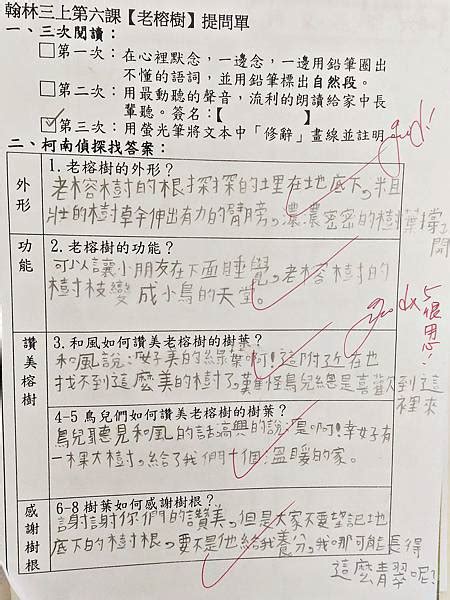 翰林三上第六課【老榕樹】提問單
一、三次閱讀：
□第一次：在心裡默念，一邊念，一邊用鉛筆圈出
不懂的語詞，並用鉛筆標出自然段。
□第二次：用最動聽的聲音，流利的朗讀給家中長
輩聽。簽名：【 】
☑第三次：用螢光筆將文本中「修辭」畫線並註明
good!!
二、柯南偵探找答案：
外形
1.老榕樹的外形？
老榕樹的根探探的土里在地底下，
壯的樹幹伸出有力的臂膀，濃濃密密的樹葉撐了
開
功能
2.老榕樹的功能？
可以讓小朋友在下面睡覺，老榕樹的
樹枝變成小鳥的天堂。
good x5
很用心！
讚美榕樹
3.和風如何讚美老榕樹的樹葉？
和風說：好美的綠葉啊！這附近在也
找不到這麼美的樹了，難怪鳥兒總是喜歡到這
裡來
4-5鳥兒們如何讚美老榕樹的樹葉？
鳥兒聽見和風的話高興的說：是啊！幸好有
一棵大樹，給了我們一個溫暖的家。
感謝樹根
6-8樹葉如何感謝樹根？
謝謝你們的讚美，但是大家不要望記地
底下的樹根，要不是他給我養分，我哪可能長得
這麼青翠呢？